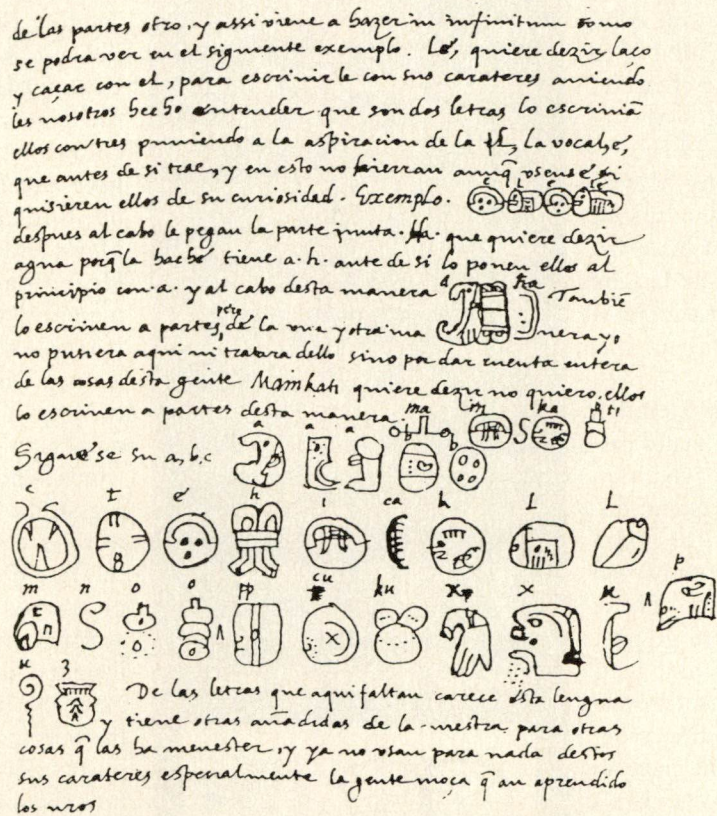 de las partes otro, y assi viene a hazer in infinitum como
se podra ver en el siguiente exemplo. Lé, quiere dezir laço
y caçar con el, para escrivirle con sus carateres aviendo
les nosotros hecho entender que son dos letras lo escrivian
ellos con tres puniendo a la aspiracion de la l, la vocal é,
que antes de si trae, y en esto no hierran aunq̃ usense si
quisieren ellos de su curiosidad. Exemplo. e L e Le
despues al cabo le pegan la parte junta. Ha. que quiere dezir
agua porq̃ la hache tiene a. h. ante de si lo ponen ellos al
principio con. a. y al cabo desta manera a ha Tambiẽ
lo escriven a partes pero de la una y otra ma nera yo
no pusiera aqui ni tratara dello sino por dar cuenta entera
de las cosas desta gente Mainkati quiere dezir no quiero. ellos
lo escriven a partes desta manera. ma in ka ti
Siguese su a, b, c a a a b b
c t é h i ca k l L
m n o o pp cu ku x x u p
u z De las letras que aqui faltan carece esta lengua
y tiene otras añadidas de la nuestra para otras
cosas q̃ las ha menester, y ya no usan para nada destos
sus carateres especialmente la gente moça q̃ an aprendido
los nros